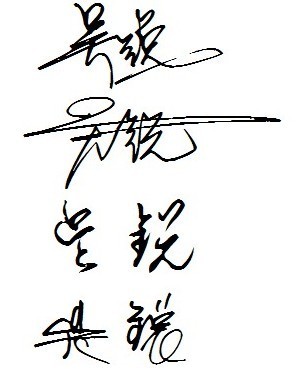 吴锐
吴锐
吴锐
吴锐